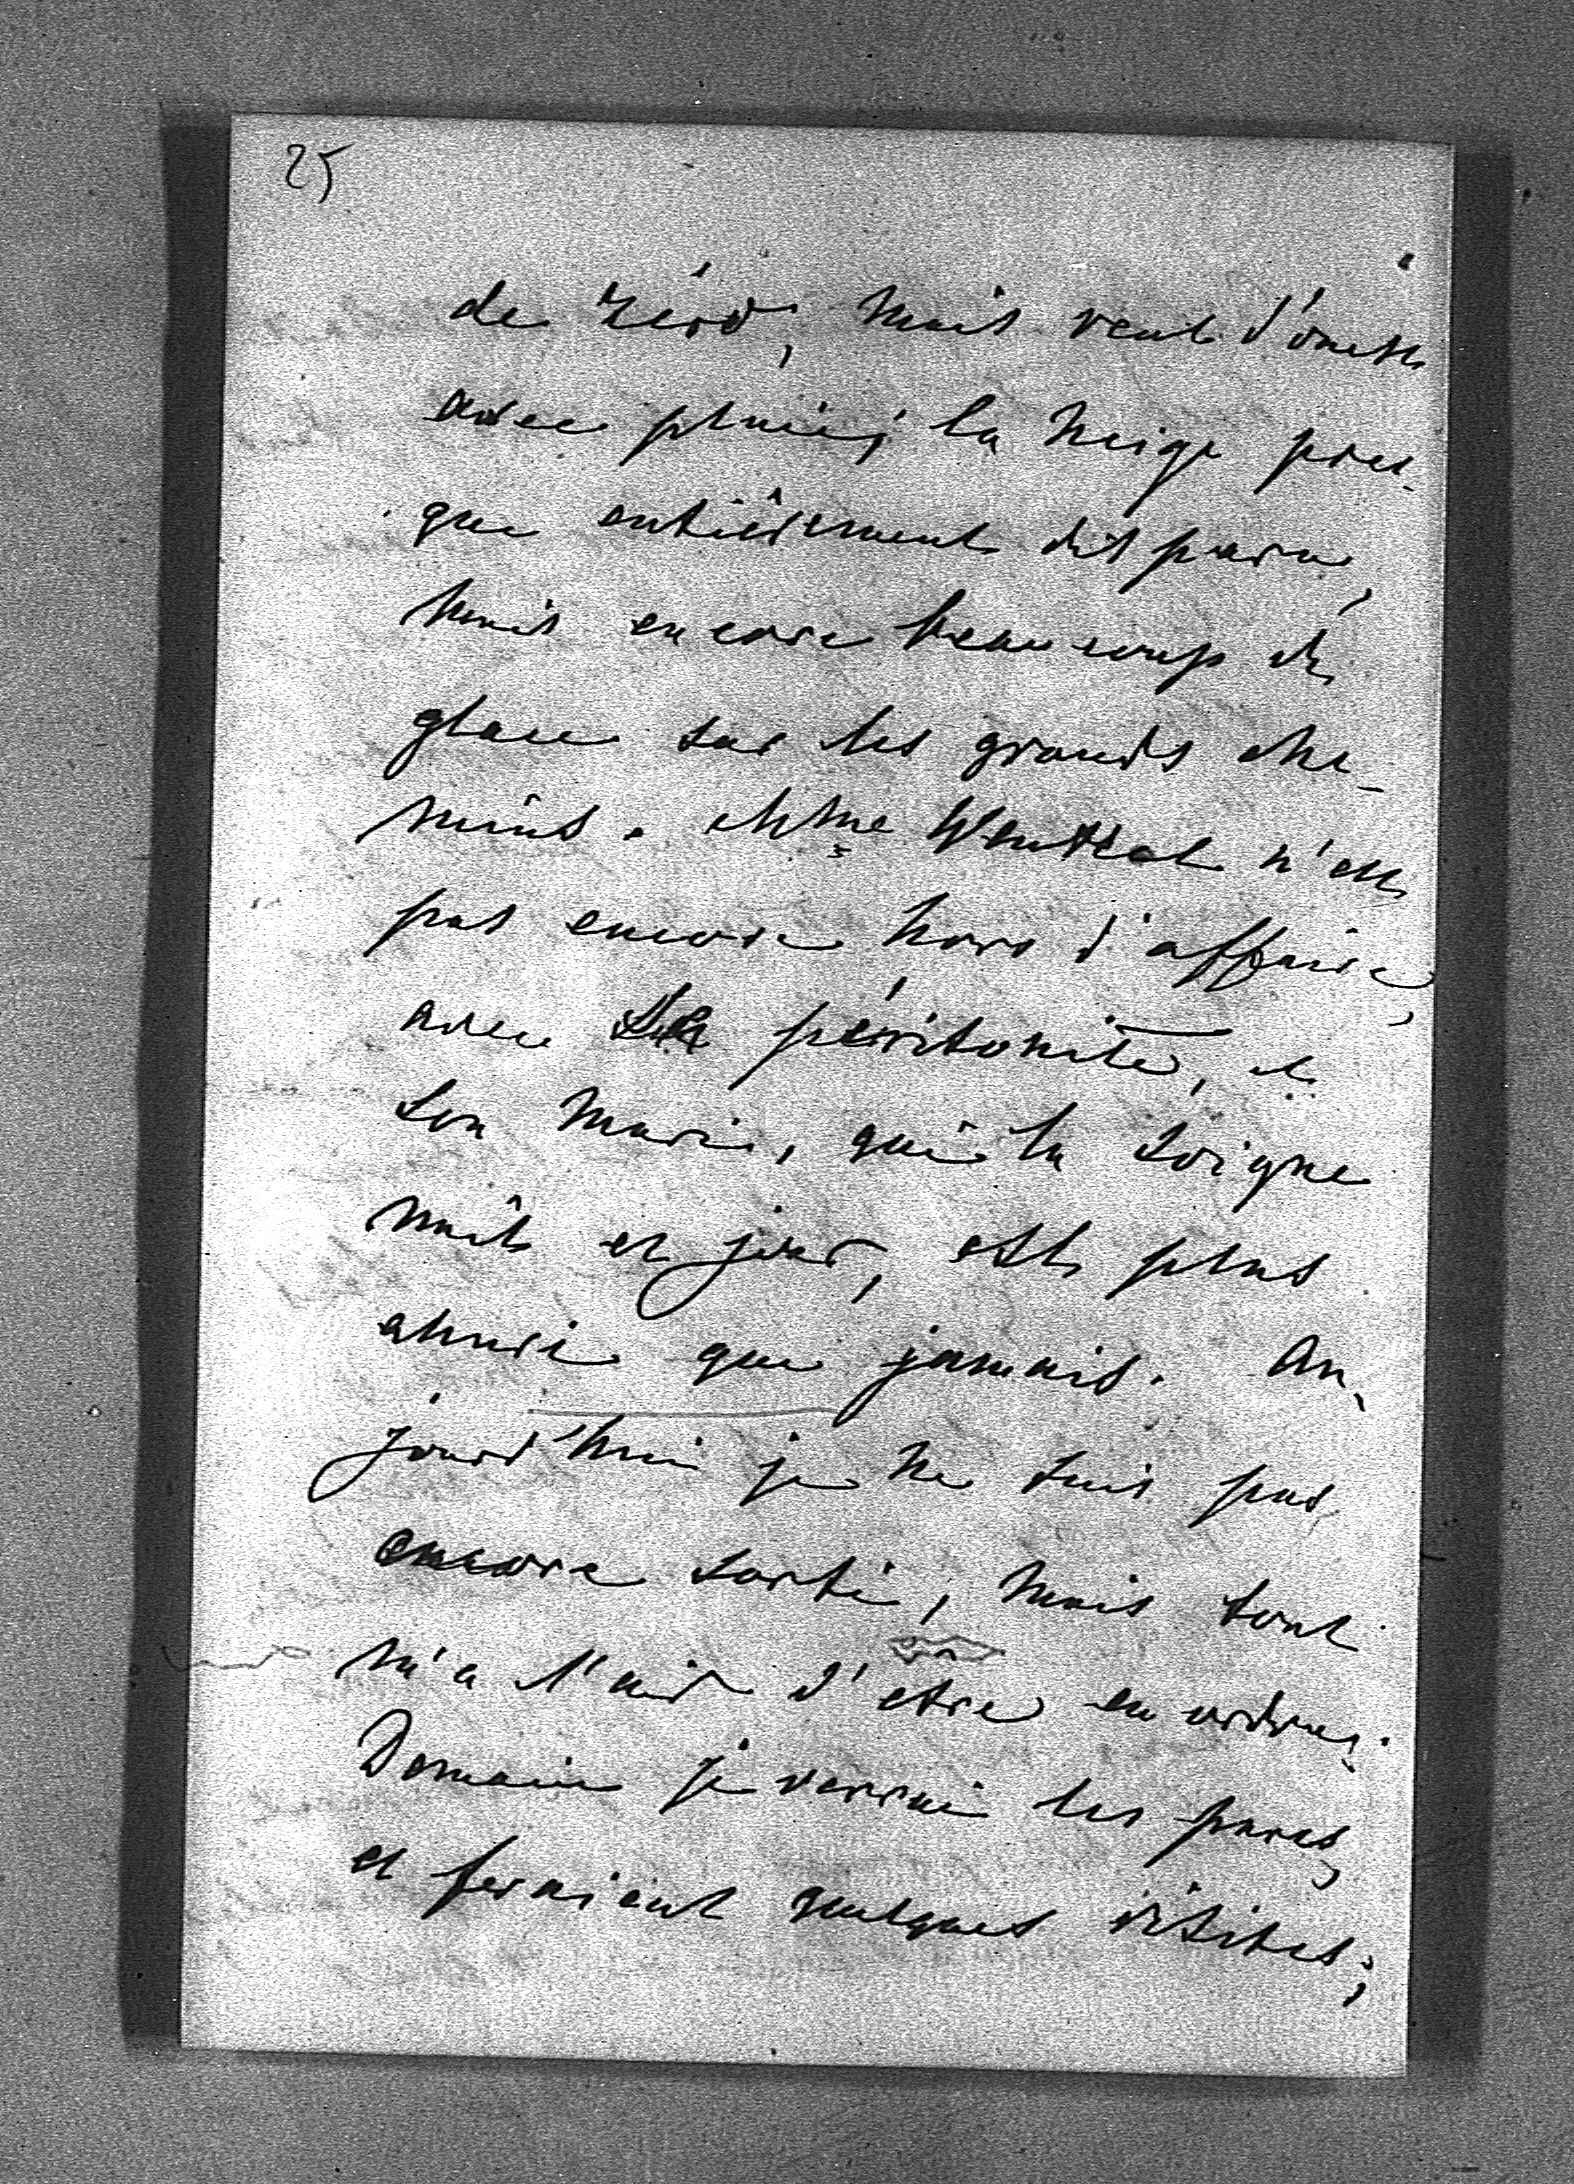 25
de zéro, mais vent d'ouest
avec pluie; la neige pres-
que entièrement disparu,
mais encore beaucoup de
glace sur les grands che-
mins. Mme n'est
pas encore hors d'affaire,
avec sa péritonite, et
son mari, qui la soigne
nuit et jour, est plus
ahuri que jamais. Au-
jourd'hui je ne suis pas
encore sorti, mais tout
m'a l'air d'être en ordre.
Demain je verrai les parcs,
et ferai quelques visites;